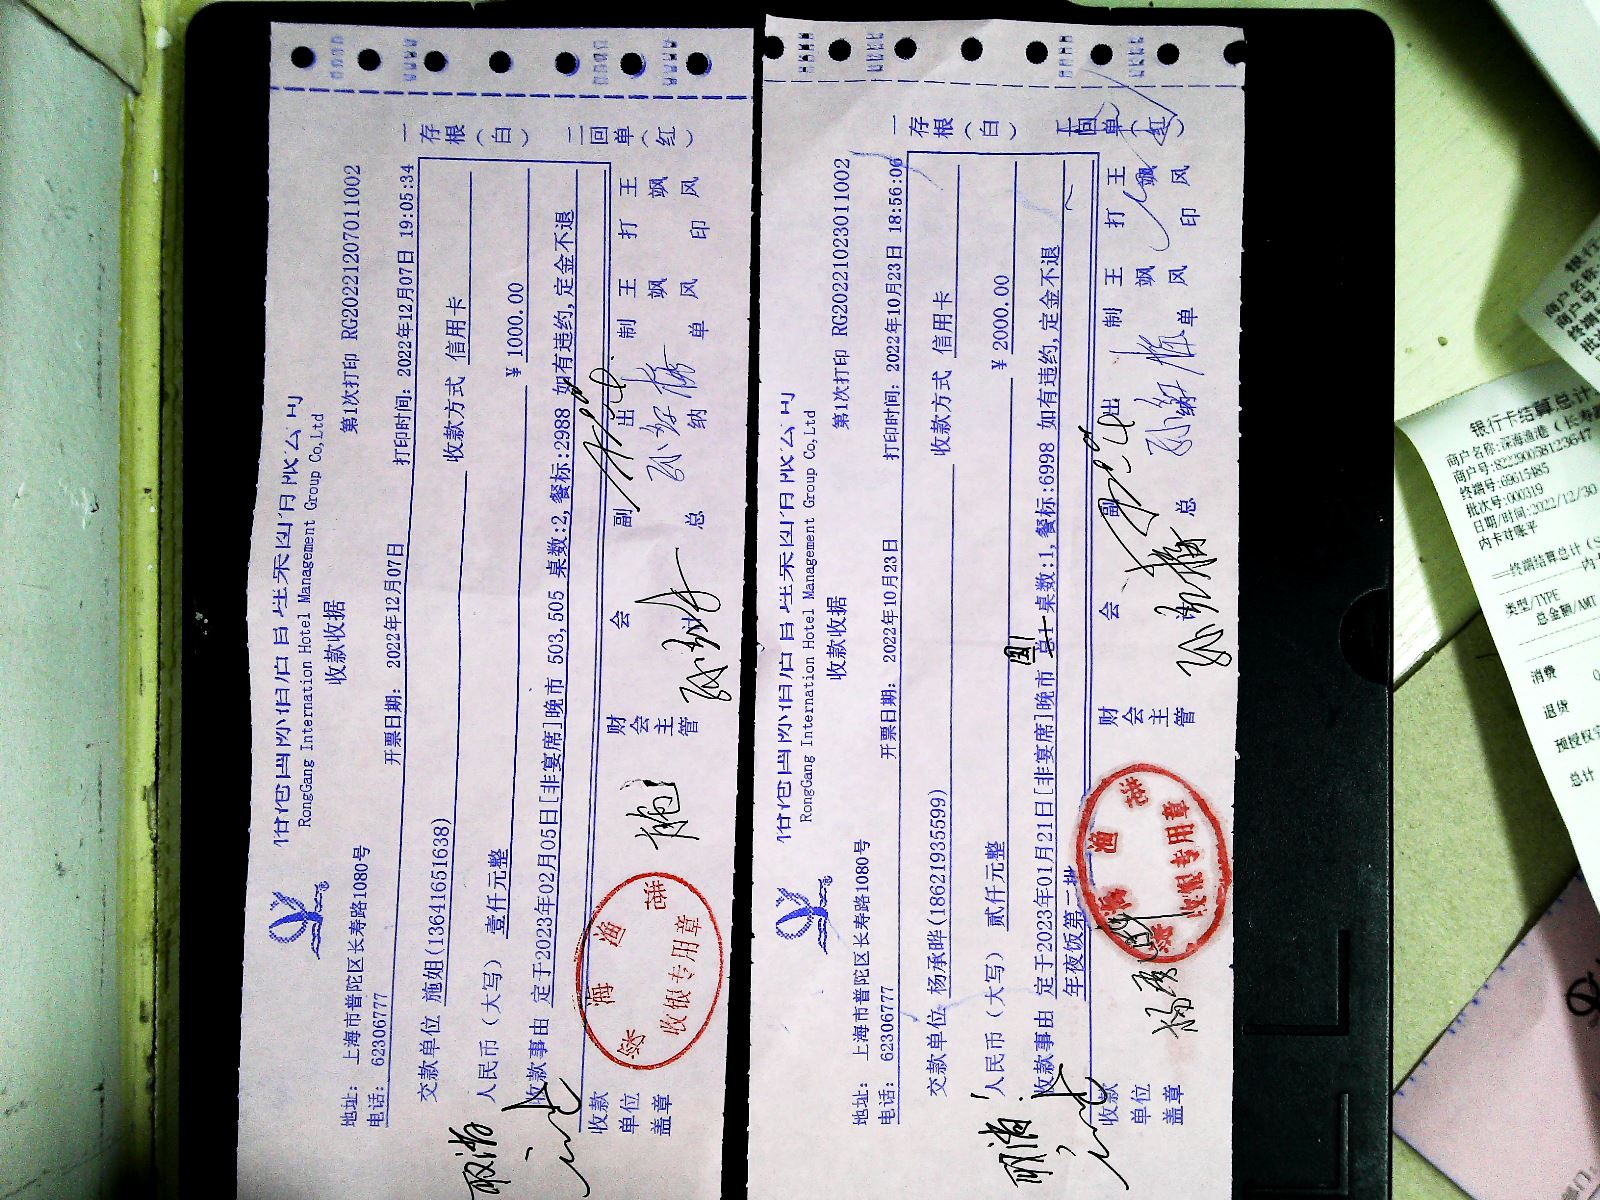 RongGang Internation Hotel Management Group Co,Ltd
收款收据
第1次打印 RG20221207011002
地址: 上海市普陀区长寿路1080号
电话: 62306777
开票日期: 2022年12月07日
打印时间: 2022年12月07日 19:05:34
交款单位 施姐(13641651638)
收款方式 信用卡
人民币(大写) 壹仟元整
¥ 1000.00
收款事由 定于2023年02月05日[非宴席]晚市 503,505 桌数:2,餐标:2988 如有违约,定金不退
收款单位盖章
财会主管
会
副总
出纳
制单
王飒风
打印
王飒风
一存根(白)
二回单(红)
深海渔港
收银专用章
取消
RongGang Internation Hotel Management Group Co,Ltd
收款收据
第1次打印 RG20221023011002
地址: 上海市普陀区长寿路1080号
电话: 62306777
开票日期: 2022年10月23日
打印时间: 2022年10月23日 18:56:06
交款单位 杨承晔(18621935599)
收款方式 信用卡
人民币(大写) 贰仟元整
¥ 2000.00
收款事由 定于2023年01月21日[非宴席]晚市 桌数:1,餐标:6998 如有违约,定金不退
年夜饭第二批
收款单位盖章
财会主管
会
副总
出纳
制单
王飒风
打印
王飒风
一存根(白)
二回单(红)
深海渔港
收银专用章
取消
银行卡结算总计
商户号:822290058123647
终端号:69615485
批次号:000319
日期/时间:2022/12/30
内卡对账平
类型/TYPE
总金额/AMT
消费
退货
总计